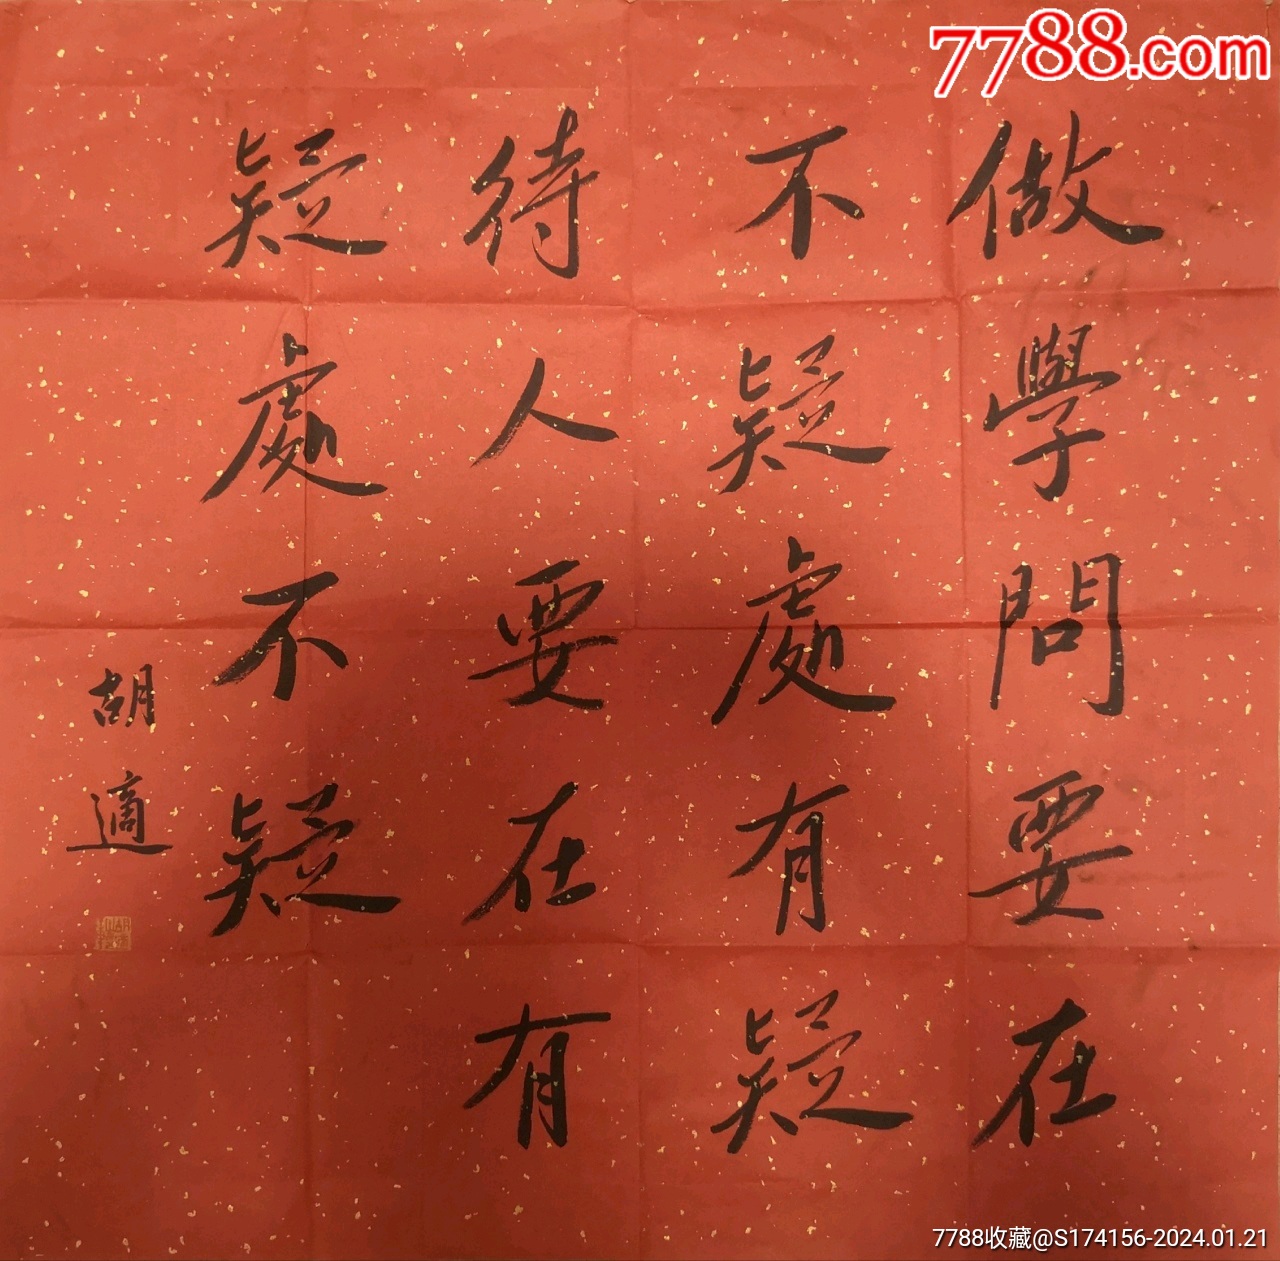 7788.com
做學問要在
不疑處有疑
待人要在有
疑處不疑
胡適
7788收藏@S174156-2024.01.21